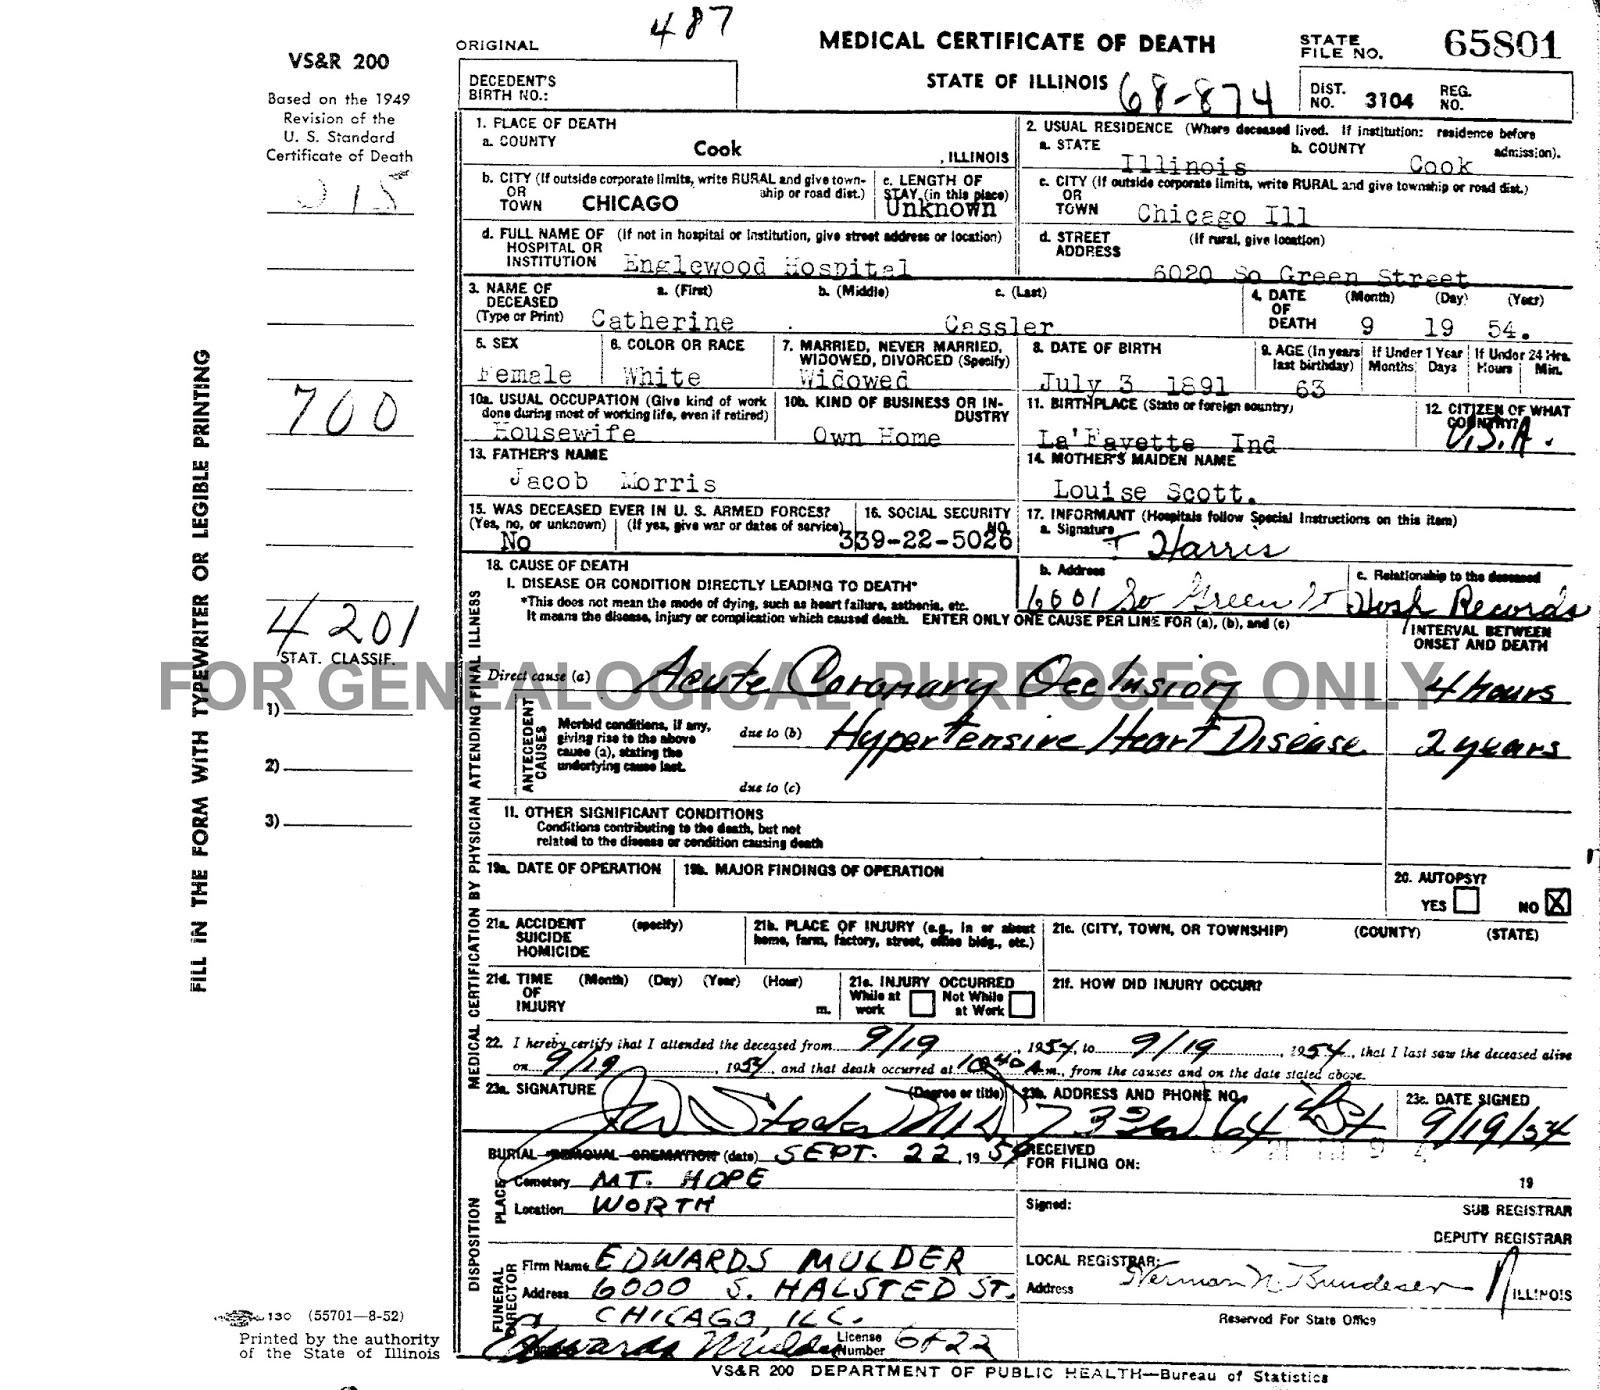 487
VS&R 200
Based on the 1949
Revision of the
U. S. Standard
Certificate of Death
ORIGINAL
DECEDENT'S
BIRTH NO.:
MEDICAL CERTIFICATE OF DEATH
STATE OF ILLINOIS 68-874
STATE
FILE NO. 65801
DIST.
NO. 3104
REG.
NO.
1. PLACE OF DEATH
a. COUNTY Cook , ILLINOIS
2. USUAL RESIDENCE (Where deceased lived. If institution: residence before
admission).
a. STATE Illinois b. COUNTY Cook
b. CITY (If outside corporate limits, write RURAL and give town-
OR ship or road dist.)
TOWN CHICAGO
c. LENGTH OF
STAY (in this place)
Unknown
c. CITY (If outside corporate limits, write RURAL and give township or road dist.)
OR
TOWN Chicago Ill
d. FULL NAME OF (If not in hospital or institution, give street address or location)
HOSPITAL OR
INSTITUTION Englewood Hospital
d. STREET (If rural, give location)
ADDRESS
6020 So Green Street
3. NAME OF a. (First) b. (Middle) c. (Last)
DECEASED
(Type or Print) Catherine . Cassler
4. DATE (Month) (Day) (Year)
OF
DEATH 9 19 54.
5. SEX
Female
6. COLOR OR RACE
White
7. MARRIED, NEVER MARRIED,
WIDOWED, DIVORCED (Specify)
Widowed
8. DATE OF BIRTH
July 3 1891
9. AGE (In years
last birthday)
63
If Under 1 Year
Months Days
If Under 24 Hrs.
Hours Min.
10a. USUAL OCCUPATION (Give kind of work
done during most of working life, even if retired)
Housewife
10b. KIND OF BUSINESS OR IN-
DUSTRY
Own Home
11. BIRTHPLACE (State or foreign country)
La'Fayette Ind
12. CITIZEN OF WHAT
COUNTRY?
U.S.A.
13. FATHER'S NAME
Jacob Morris
14. MOTHER'S MAIDEN NAME
Louise Scott.
15. WAS DECEASED EVER IN U. S. ARMED FORCES?
(Yes, no, or unknown) (If yes, give war or dates of service)
No
16. SOCIAL SECURITY
NO.
339-22-5026
17. INFORMANT (Hospitals follow Special Instructions on this item)
a. Signature Harris
b. Address
6001 So Green St
c. Relationship to the deceased
Hosp Records
18. CAUSE OF DEATH
I. DISEASE OR CONDITION DIRECTLY LEADING TO DEATH*
*This does not mean the mode of dying, such as heart failure, asthenia, etc.
It means the disease, injury or complication which caused death. ENTER ONLY ONE CAUSE PER LINE FOR (a), (b), and (c)
INTERVAL BETWEEN
ONSET AND DEATH
Direct cause (a) Acute Coronary Occlusion 4 hours
ANTECEDENT
CAUSES
Morbid conditions, if any,
giving rise to the above
cause (a), stating the
underlying cause last.
due to (b) Hypertensive Heart Disease 2 years
due to (c)
11. OTHER SIGNIFICANT CONDITIONS
Conditions contributing to the death, but not
related to the disease or condition causing death
19a. DATE OF OPERATION
19b. MAJOR FINDINGS OF OPERATION
20. AUTOPSY?
YES NO X
21a. ACCIDENT (specify)
SUICIDE
HOMICIDE
21b. PLACE OF INJURY (e.g., in or about
home, farm, factory, street, office bldg., etc.)
21c. (CITY, TOWN, OR TOWNSHIP) (COUNTY) (STATE)
21d. TIME (Month) (Day) (Year) (Hour)
OF
INJURY m.
21e. INJURY OCCURRED
While at Not While
work at Work
21f. HOW DID INJURY OCCUR?
22. I hereby certify that I attended the deceased from 9/19, 1954, to 9/19, 1954, that I last saw the deceased alive
on 9/19, 1954, and that death occurred at 10:40 A.m., from the causes and on the date stated above.
23a. SIGNATURE (Degree or title)
23b. ADDRESS AND PHONE NO.
733 W. 64th St
23c. DATE SIGNED
9/19/54
BURIAL REMOVAL CREMATION (date) SEPT. 22, 1954
PLACE
Cemetery MT. HOPE
Location WORTH
RECEIVED
FOR FILING ON:
19
Signed:
SUB REGISTRAR
DEPUTY REGISTRAR
DISPOSITION
FUNERAL
DIRECTOR
Firm Name EDWARDS MULDER
Address 6000 S. HALSTED ST.
CHICAGO, ILL.
Edwards Mulder License
Number 6822
LOCAL REGISTRAR:
Address Herman N. Bundesen
ILLINOIS
Reserved For State Office
VS&R 200 DEPARTMENT OF PUBLIC HEALTH—Bureau of Statistics
FILL IN THE FORM WITH TYPEWRITER OR LEGIBLE PRINTING
MEDICAL CERTIFICATION BY PHYSICIAN ATTENDING FINAL ILLNESS
700
4201
STAT. CLASSIF.
1)
2)
3)
130 (55701—8-52)
Printed by the authority
of the State of Illinois
FOR GENEALOGICAL PURPOSES ONLY